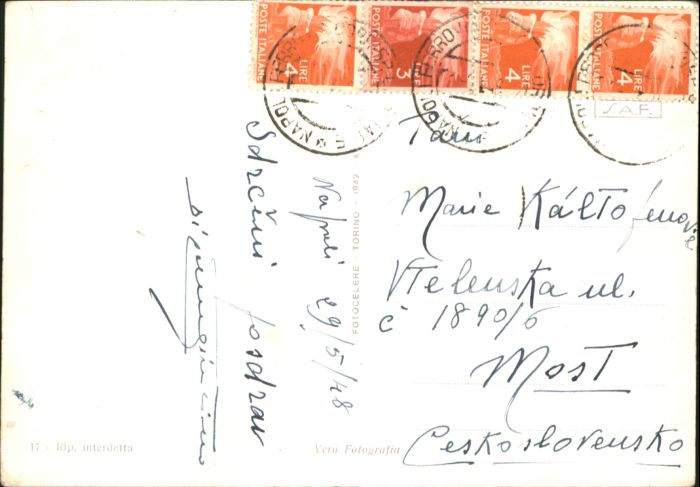 POSTE ITALIANE LIRE 4
POSTE ITALIANE 3
POSTE ITALIANE LIRE 4
POSTE ITALIANE LIRE 4
NAPOLI FERROVIA
S.A.F.
Napoli 29/5/48
Srdčni posdrav
FOTOCELERE - TORINO - 1942
Marie Káltofenova
Vtelenska ul.
č 1890/6
Most
Československo
17 - Rip. interdetta
Vera Fotografia